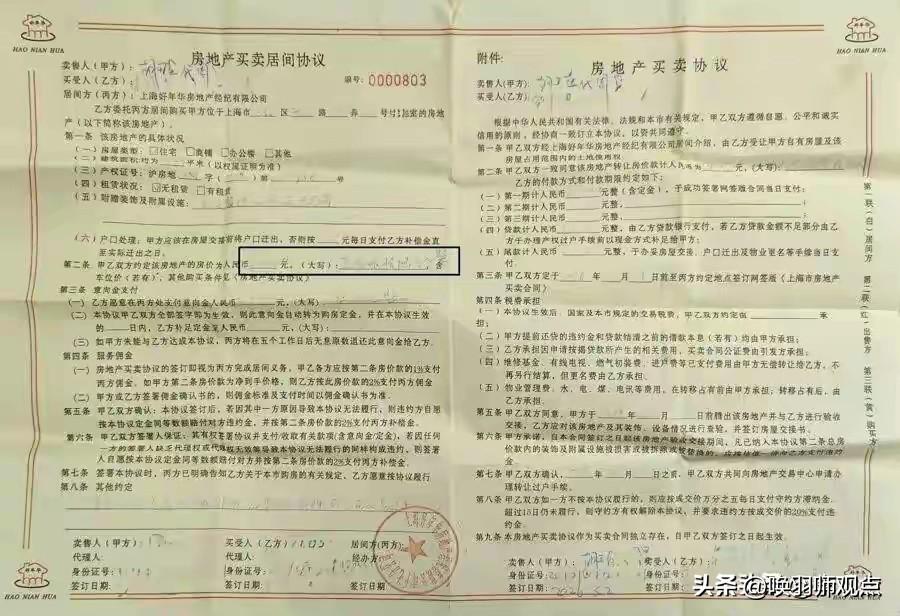 HAO NIAN HUA
房地产买卖居间协议
编号：0000803
卖售人（甲方）：
买受人（乙方）：
居间方（丙方）：上海好年华房地产经纪有限公司
乙方委托丙方居间购买甲方位于上海市 区 路 弄 号
产（以下简称该房地产）。
第一条 该房地产的具体状况
（一）房屋类型：□住宅 □商铺 □办公楼 □其他
（二）建筑面积约为 平米（以权属证明为准）
（三）产权证号：沪房地 字（ ）第 号
（四）租赁状况：☑无租赁 □有租赁
（五）附赠装饰及附属设施：
（六）户口处理：甲方应该在房屋交接前将户口迁出，否则按 元每日支付乙方补偿金直
至实际迁出之日。
第二条 甲乙双方约定该房地产的房价为人民币 元，（大写）：
车位价（若有），其他购买条件见《房地产买卖协议》
第三条 意向金支付
（一）乙方愿意在丙方处支付意向金人民币 元，（大写）：
（二）本协议甲乙双方全部签字即为生效，则此意向金自动转为购房定金，并在本协议生效
的 日内，乙方补足定金至人民币 元，（大写）：
（三）如甲方未能与乙方达成本协议，丙方将在五个工作日后无息原数退还此意向金给乙方。
第四条 服务佣金
（一）房地产买卖协议的签订即视为丙方完成居间义务，甲乙各方应按第二条房价款的1%支付
丙方佣金。如甲方第二条房价款为净到手价格，则乙方按此房价款的2%支付丙方佣金
（二）甲方或乙方签署佣金确认书的，则佣金标准及支付时间以佣金确认书为准。
第五条 甲乙双方确认：本协议签订后，若因其中一方原因导致本协议无法履行，则违约方自愿
按本协议定金同等数额赔付对方违约金，并按第二条房价款的2%支付丙方补偿金。
第六条 甲乙双方签署人保证：其有权签署协议并支付/收取有关款项（含意向金/定金），若因任何
一方的签署人缺乏代理权或代理权无效等导致本协议无法履行的同样构成违约，则签署
人自愿按本协议定金同等数额赔付对方并按第二条房价款的2%支付丙方补偿金。
第七条 签署本协议时，丙方已明确告知乙方关于本市购房的有关规定，乙方愿意按协议履行
第八条 其他约定
卖售人（甲方）： 买受人（乙方）： 居间方（丙方）：
代理人： 代理人： 经办方：
身份证号： 身份证号：
签订日期： 签订日期： 签订日期：
HAO NIAN HUA
附件：
房地产买卖协议
卖售人（甲方）：
买受人（乙方）：
根据中华人民共和国有关法律、法规和本市有关规定，甲乙双方遵循自愿、公平和诚实
信用的原则，经协商一致订立本协议，以资共同遵守。
第一条 甲乙双方经上海好年华房地产经纪有限公司居间介绍，由乙方受让甲方自有房屋及该
房屋占用范围内的土地使用权
第二条 甲乙双方一致同意该房地产转让房价款计人民币为 元，（大写）：
乙方的付款方式和付款期限约定如下：
（一）第一期计人民币 元整（含定金），于成功签署网签版合同当日支付；
（二）第二期计人民币 元整，
（三）第三期计人民币 元整，
（四）贷款计人民币 元整，由乙方贷款银行支付，若乙方贷款金额不足部分由乙
方于办理产权过户手续前以现金方式补足给甲方；
（五）尾款计人民币 元整，于办妥房屋交接、户口迁出及物业更名等手续当日支
付。
第三条 甲乙双方定于 年 月 日前至丙方约定地点签订网签版《上海市房地产
买卖合同》
第四条 税费承担
（一）本协议生效后，国家及本市规定的交易税费，甲方双方约定由 承
担；
（二）甲方提前还贷的违约金和贷款结清之前的借款本息（若有）均由甲方承担；
（三）乙方承担因申请按揭贷款所产生的相关费用、买卖合同公证费由引发方承担；
（四）维修基金、有线电视、燃气初装费、进户费等已支付费用由甲方无偿转让给乙方，不
再另行结算，但更名费由乙方承担。
（五）物业管理费、水、电、煤、电讯等费用，在转移占有前由甲方承担；转移占有后，由
乙方承担。
第五条 甲乙双方同意，甲方于 年 月 日前腾出该房地产并与乙方进行验收
交接，乙方应对该房地产及其装饰、设备情况进行查验，并签订房屋交接书。
第六条 甲方承诺，自本合同签订之日起该房地产验收交接期间，凡已纳入本协议第二条总房
价款内的装饰及附属设施被损害或被拆除或被替换的，
第七条 甲乙双方确认， 年 月 日之前，甲乙双方共同向房地产交易中心申请办
理转让过户手续。
第八条 甲乙双方如一方不按本协议履行的，则应按成交价万分之五每日支付守约方滞纳金，
超过15日仍未履行，则守约方有权解除本协议，并要求违约方按成交价的20%支付违
约金。
第九条 本房地产买卖协议作为买卖合同独立存在，自甲乙方签订之日起生效。
卖售人（甲方）： 买受人（乙方）：
代理人： 代理人：
身份证号：
签订日期：
第一联（白）居间方 第二联（红）出售方 第三联（黄）购买方
HAO NIAN HUA
HAO NIAN HUA
头条@晚羽师观点